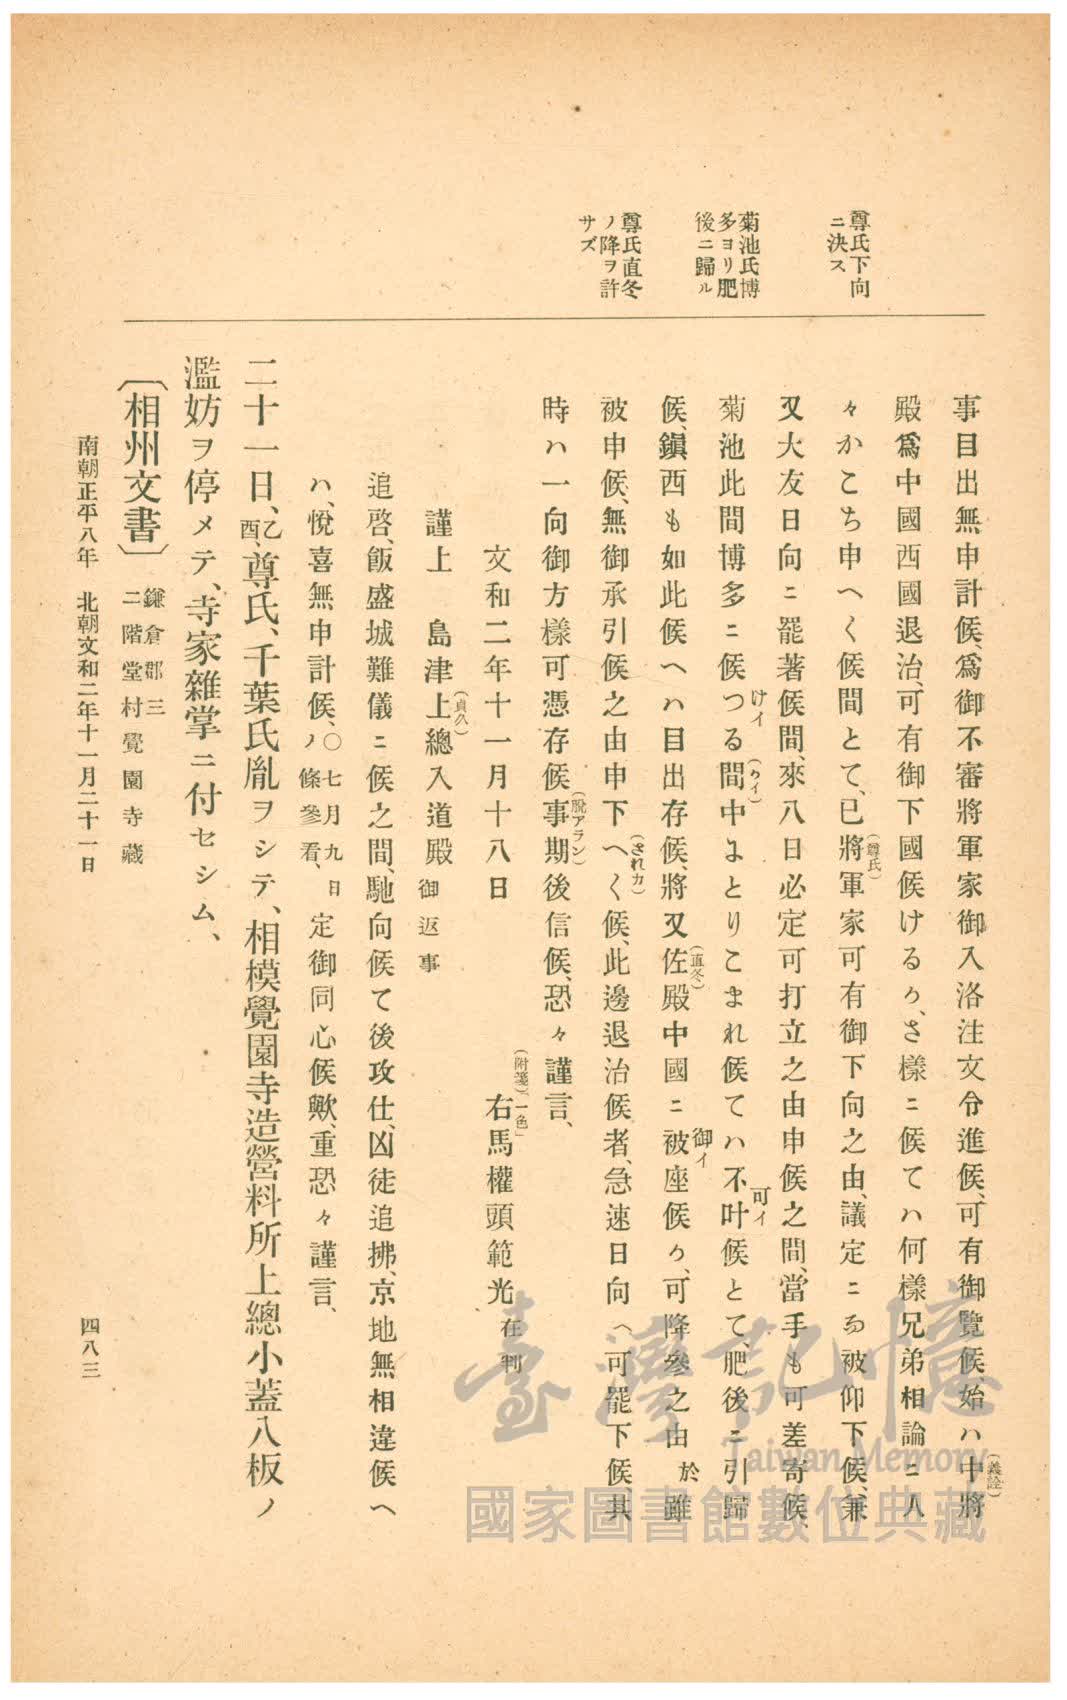 尊氏下向
ニ決ス
菊池氏博
多ヨリ肥
後ニ歸ル
尊氏直冬
ノ降ヲ許
サズ
事目出無申計候、爲御不審將軍家御入洛注文令進候、可有御覽候、始ハ中將(義詮)
殿爲中國西國退治、可有御下國候けるか、さ樣ニ候てハ何樣兄弟相論ニ人
々かこち申へく候間とて、已將軍(尊氏)家可有御下向之由、議定ニて被仰下候、兼
又大友日向ニ罷著候間、來八日必定可打立之由申候之間、當手も可差寄候、
菊池此間博多ニ候つる(けイ)間(かイ)中にとりこまれ候てハ不(可イ)叶候とて、肥後ニ引歸
候、鎭西も如此候へハ目出存候、將又佐(直冬)殿中國ニ被(御イ)座候か、可降參之由 於雖
被申候、無御承引候之由申下へ(されカ)く候、此邊退治候者、急速日向へ可罷下候、其
時ハ一向御方樣可憑存候事(脫アラン)期後信候、恐々謹言、
文和二年十一月十八日
右(附箋)「一色」馬權頭範光 在判
謹上 島津上(貞久)總入道殿 御返事
追啓、飯盛城難儀ニ候之間、馳向候て後攻仕、凶徒追拂、京地無相違候へ
ハ、悅喜無申計候、○七月九日ノ條參看、定御同心候歟、重恐々謹言、
二十一日、乙酉、尊氏、千葉氏胤ヲシテ、相模覺園寺造營料所上總小蓋八板ノ
濫妨ヲ停メテ、寺家雜掌ニ付セシム、
〔相州文書〕 鎌倉郡三
二階堂村覺園寺藏
南朝正平八年 北朝文和二年十一月二十一日
四八三
臺灣記憶
Taiwan Memory
國家圖書館數位典藏